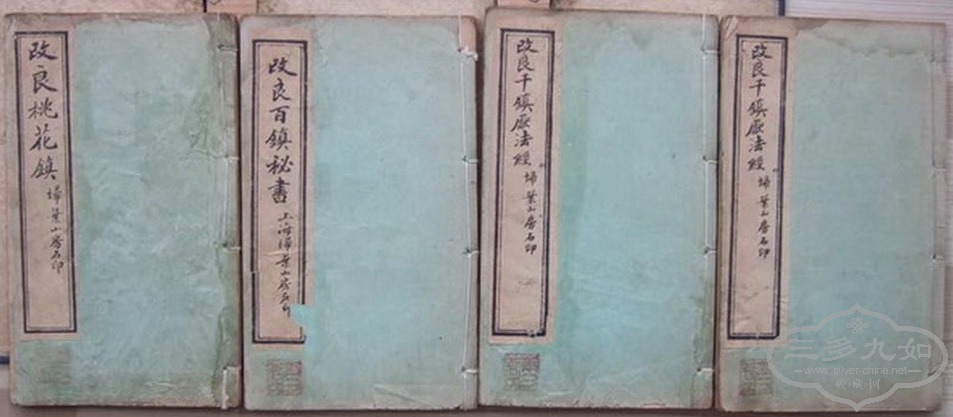 改良桃花鎮 埽葉山房石印
改良百鎮秘書 上海埽葉山房石印
改良千鎮厭法經 埽葉山房石印
改良千鎮厭法經 埽葉山房石印
三多九如
www.silver-china.net
收藏网